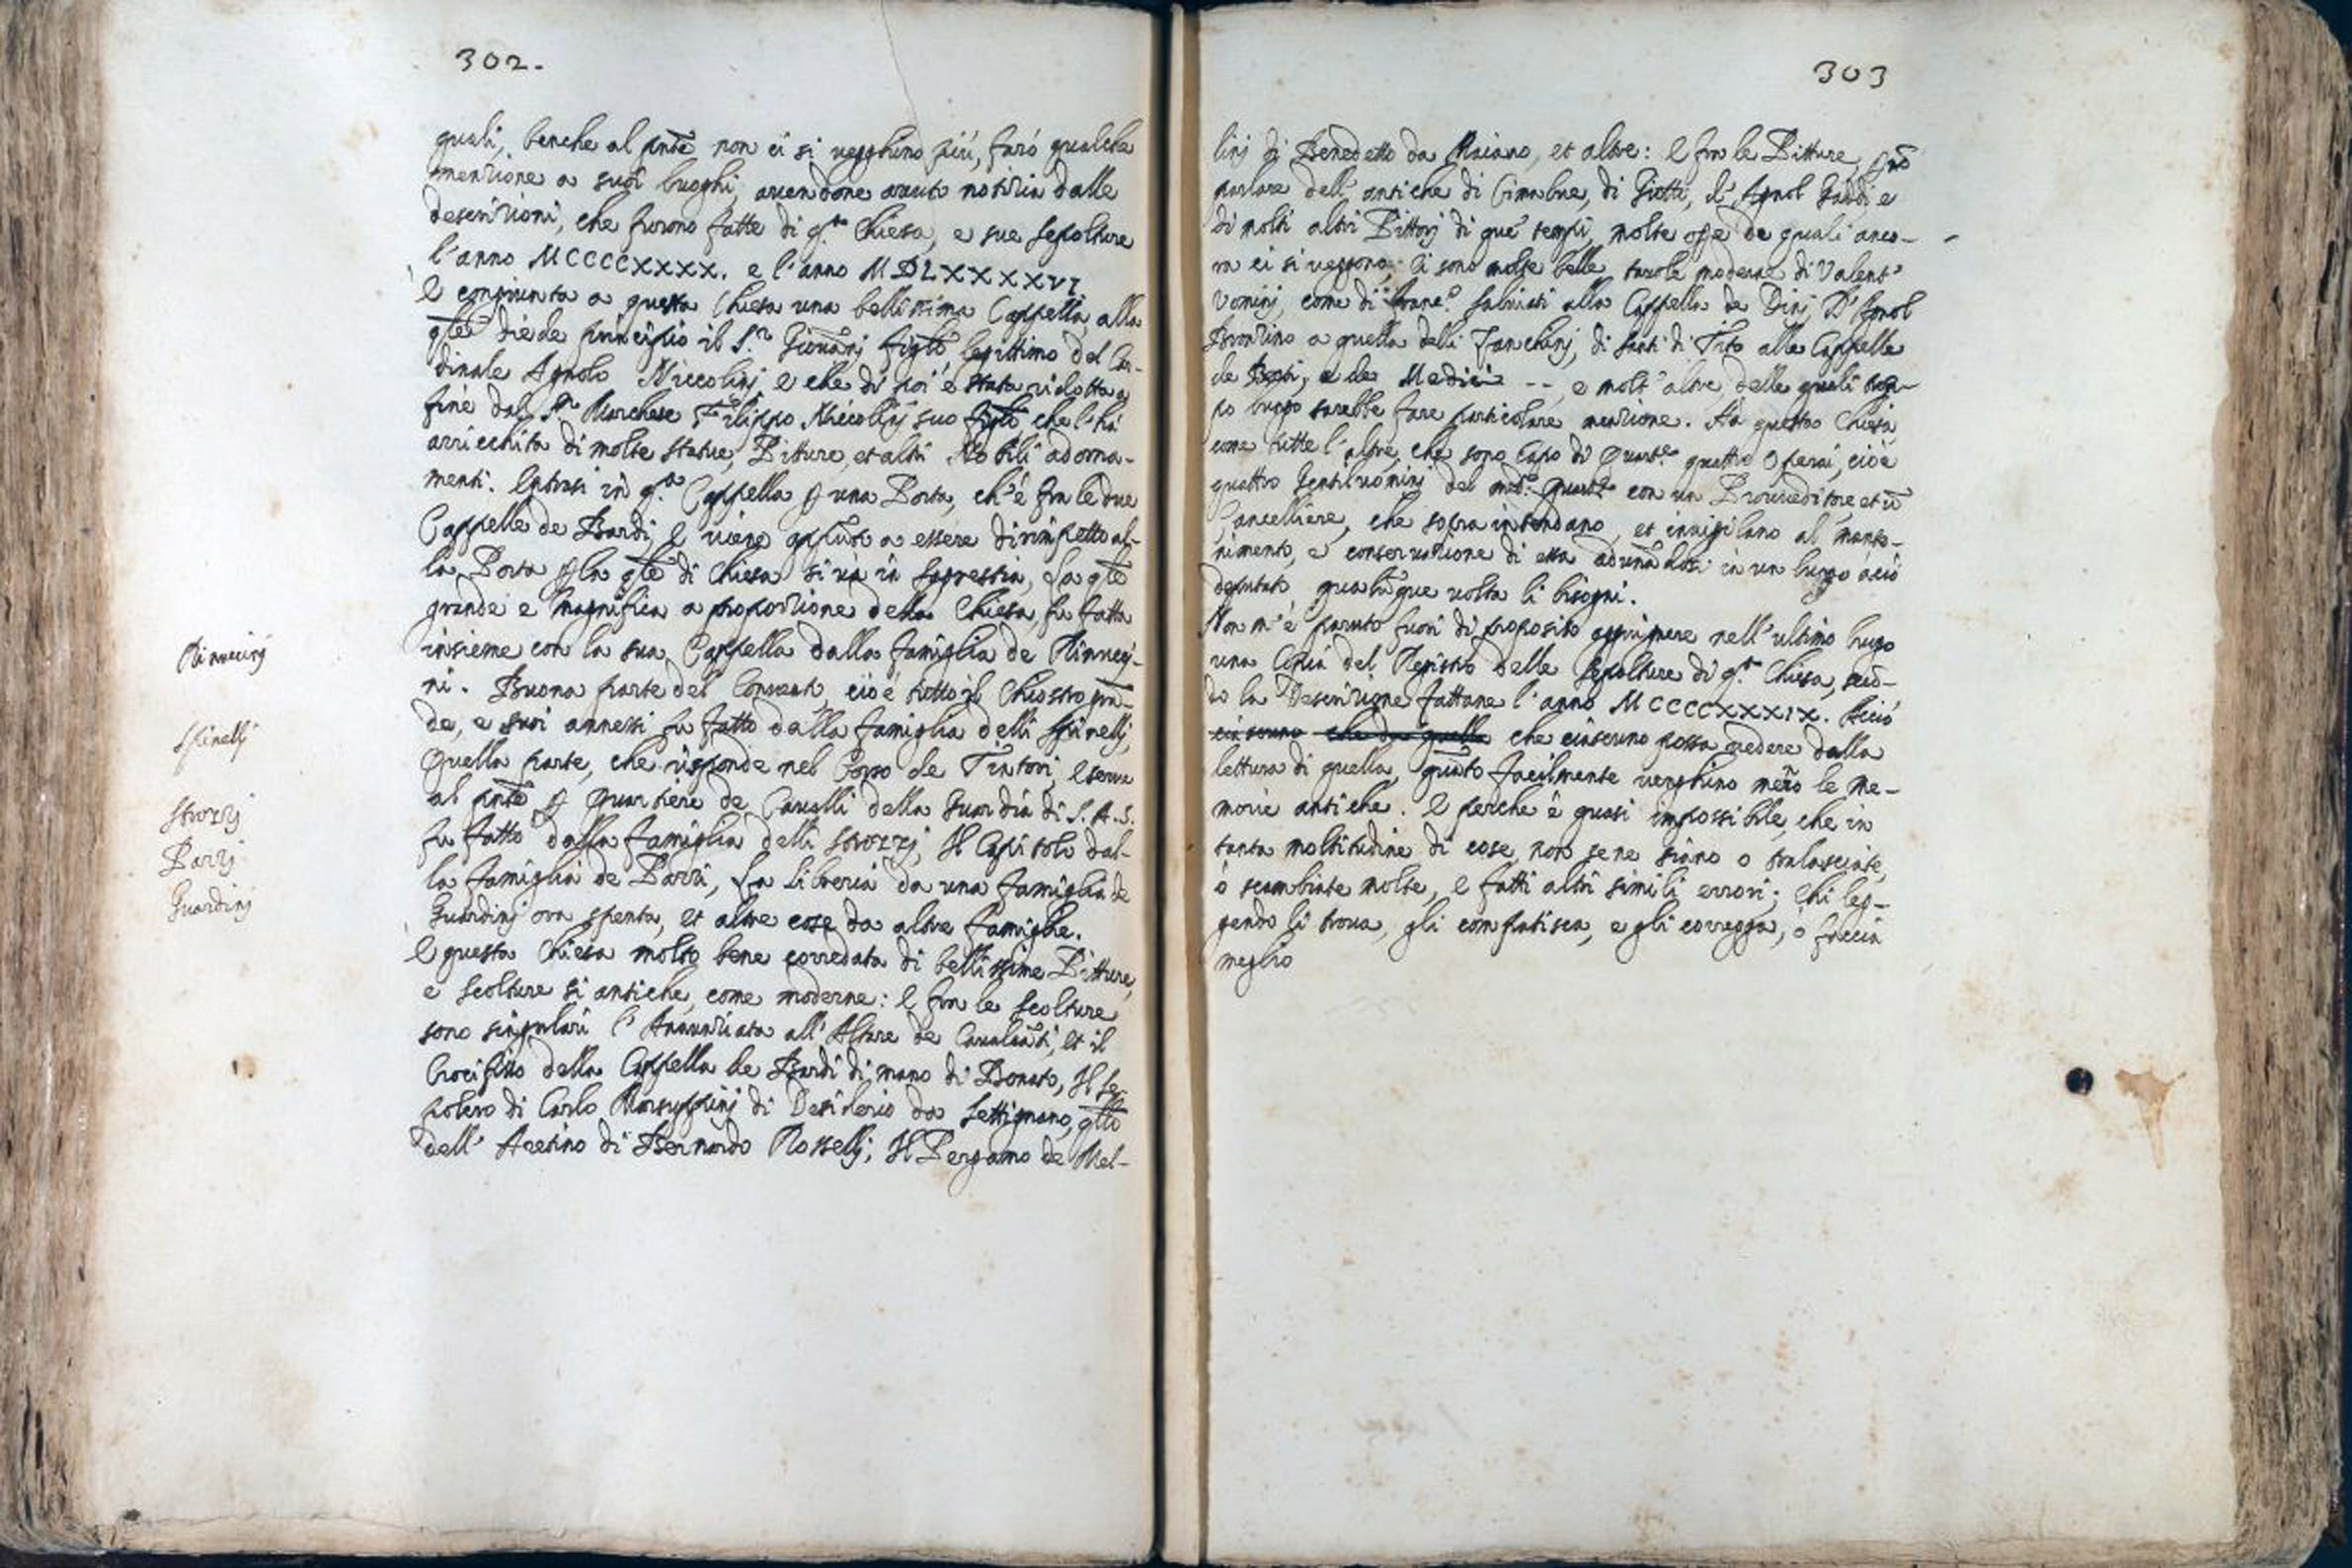 302.
quali, benche al pñte non ci si vegghino più, farò qualche
menzione a suoi luoghi, avendone avuto notizia dalle
descrizioni, che furono fatte di q.ta Chiesa, e sue Sepolture
l'anno MCCCCXXXX. e l'anno MDLXXXXVI
È congiunta a questa Chiesa una bellissima Cappella, alla
qle diede principio il S.r Giovañj figlo legittimo del Car-
dinale Agnolo Niccolinj, e che di poi è stata ridotta a
fine dal S.r Marchese Filippo Niccolinj suo figlo che l'hà
arricchita di molte statue, Pitture, et altri Nobili adorna-
menti. Entrasi in q.a Cappella p una Porta, ch'è fra le due
Cappelle de Bardi, e viene appũto a essere dirimpetto al-
la Porta p la qle di Chiesa si va in Sagrestia, La qle
grande e magnifica a proporzione della Chiesa, fu fatta
Rinuccinj
insieme con la sua Cappella dalla famiglia de Rinucci-
ni. Buona parte del Convento, cioè tutto il Chiostro grã-
Spinellj
de, e suoi annessi fu fatto dalla famiglia delli Spinellj,
Quella parte, che risponde nel Corso de Tintori, e serve
al pñte p Quartiere de Cavalli della Guardia di S. A. S.
Strozzj
fu fatto dalla famiglia delli Strozzj, Il Capitolo dal-
Pazzj
la famiglia de Pazzi, La Libreria da una famiglia de
Guardinj
Guardinj ora spenta, et altre cose da altre famiglie.
È questa Chiesa molto bene corredata di bellissime Pitture,
e scolture si antiche, come moderne: E fra le scolture
sono singulari l'Anunziata all'Altare de Cavalcãti, et il
Crocifisso della Cappella de Bardi di mano di Donato, Il Se-
polcro di Carlo Marsuppinj di Desiderio da Settignano, qllo
dell'Aretino di Bernardo Rossellj; Il Pergamo de Mel-
303
linj di Benedetto da Maiano, et altre: E fra le Pitture,
parlare dell'antiche di Cimabue, di Giotti, d'Agnol Gaddi e
di molti altri Pittorj di que' tempi, molte ope de quali anco-
ra ci si veggono; Ci sono molte belle tavole moderne di Valent'
Vominj, come di Franc.o Salviati alla Cappella de Dinj, D'Agnol
Bronzino a quella delli Zanchinj, di Santi di Tito alle Cappelle
de Berti, e de Medici -- e molt'altre, delle quali trop-
po lungo sarebbe fare particolare menzione. Hà questa Chiesa,
come tutte l'altre, che sono Capo di Quart.e quattro Operai, cioè
quattro Gentiluominj del med.o Quart.e con un Provveditore et ũ
Cancelliere, che sopra intendano, et invigilano al mante-
nimento, e conservazione di essa adunãdosi in un luogo a ciò
deputato qualũque volta li bisogni.
Non m'è paruto fuori di proposito apprimere nell'ultimo luogo
una Copia del Registro delle Sepolture di q.ta Chiesa, secõ-
do la Descrizione fattane l'anno MCCCCXXXIX. Acciò
ciascuno che da quella che ciascuno possa vedere dalla
lettura di quella, quãto facilmente venghino meño le me-
morie antiche. E perche è quasi impossibile, che in
tanta moltitudine di cose, non se ne siano o tralasciate,
ò scambiate molte, e fatti altri simili errori; Chi leg-
gendo li trova, gli compatisca, e gli corregga, ò faccia
meglio